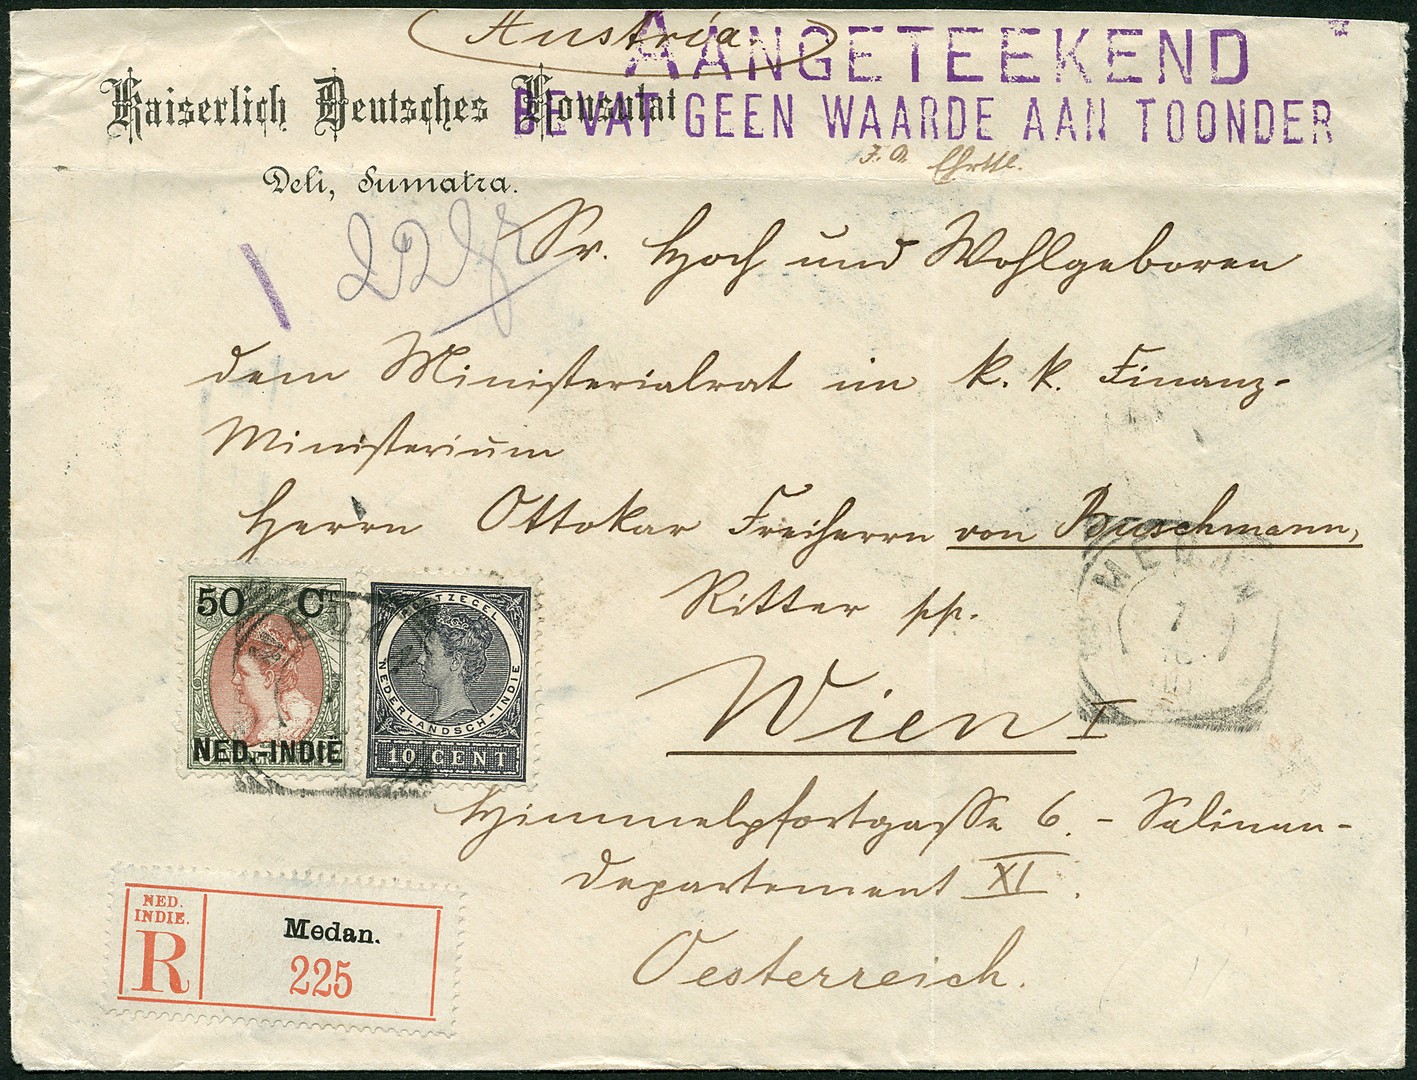 (Austria)
AANGETEEKEND
BEVAT GEEN WAARDE AAN TOONDER
Kaiserlich Deutsches Konsulat
Deli, Sumatra.
Sr. Hoch und Wohlgeboren
dem Ministerialrat im k. k. Finanz-
Ministerium
Herrn Ottokar Freiherrn von Buschmann,
Ritter pp.
Wien I
Himmelpfortgasse 6. - Salinen-
departement XI.
Oesterreich.
50 CT
NED.-INDIË
POSTZEGEL
NEDERLANDSCH-INDIE
10 CENT
MEDAN
NED.
INDIE.
R
Medan.
225